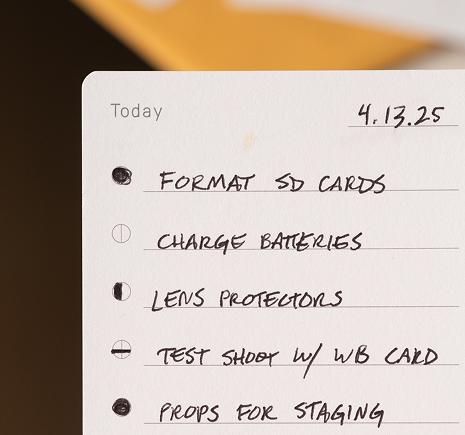 Today
4.13.25
FORMAT SD CARDS
CHARGE BATTERIES
LENS PROTECTORS
TEST SHOOT W/ WB CARD
PROPS FOR STAGING